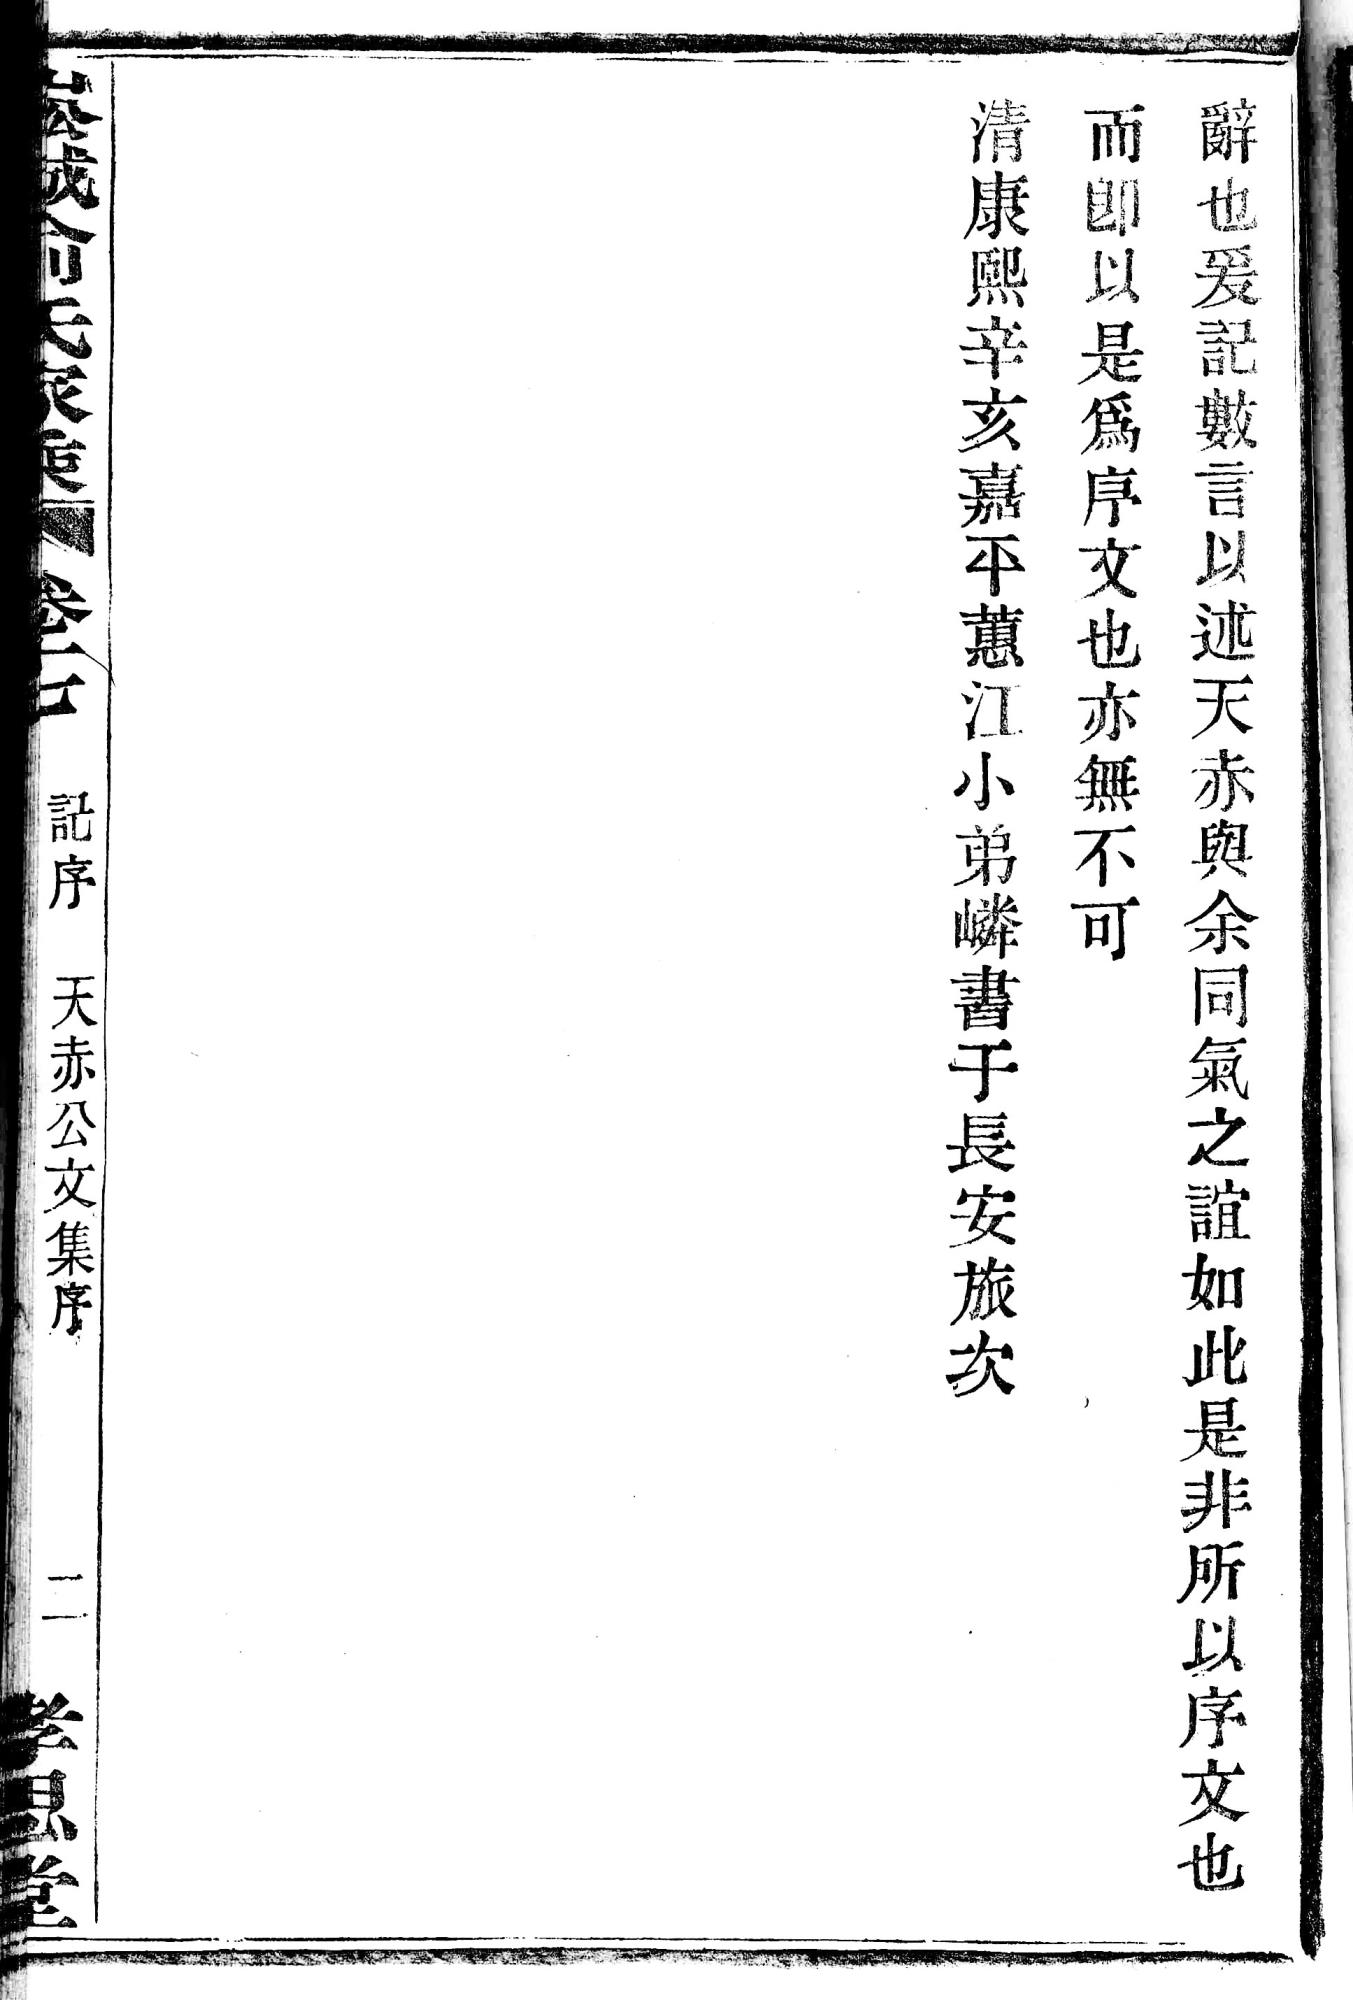 辭也爰記數言以述天赤與余同氣之誼如此是非所以序文也
而卽以是爲序文也亦無不可
清康熙辛亥嘉平蕙江小弟嶙書于長安旅次
崧城俞氏家乘 卷二七 記序 天赤公文集序 二 孝思堂